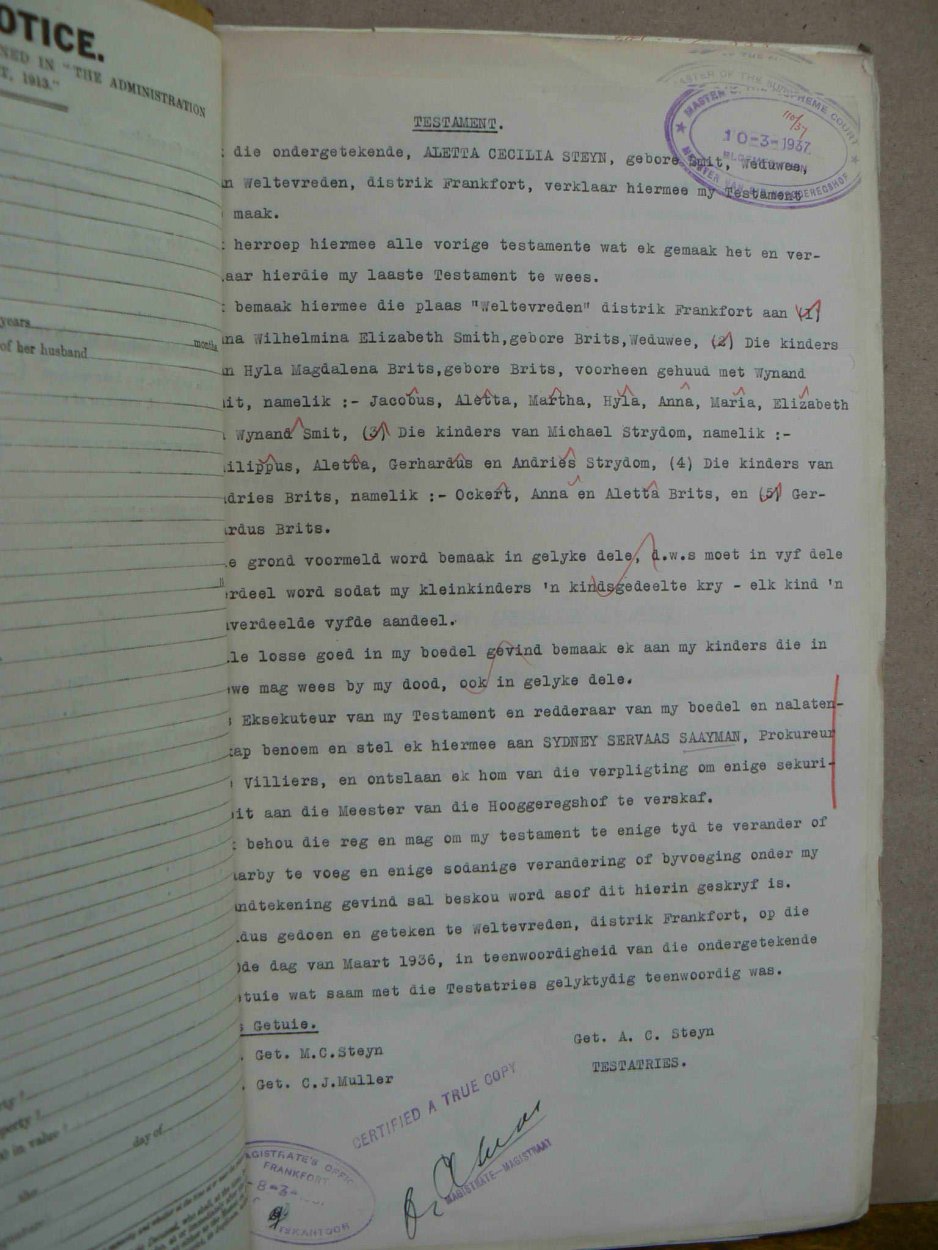 OTICE.
NED IN "THE ADMINISTRATION
T, 1913."
years
months
of her husband
day of
MASTER OF THE SUPREME COURT
110/37
10-3-1937
MEESTER VAN DIE HOOGGEREGSHOF
TESTAMENT.
die ondergetekende, ALETTA CECILIA STEYN, gebore Smit, Weduwee,
n Weltevreden, distrik Frankfort, verklaar hiermee my Testament
maak.
herroep hiermee alle vorige testamente wat ek gemaak het en ver-
aar hierdie my laaste Testament te wees.
bemaak hiermee die plaas "Weltevreden" distrik Frankfort aan (1)
na Wilhelmina Elizabeth Smith,gebore Brits,Weduwee, (2) Die kinders
n Hyla Magdalena Brits,gebore Brits, voorheen gehuud met Wynand
it, namelik :- Jacobus, Aletta, Martha, Hyla, Anna, Maria, Elizabeth
Wynand Smit, (3) Die kinders van Michael Strydom, namelik :-
ilippus, Aletta, Gerhardus en Andries Strydom, (4) Die kinders van
dries Brits, namelik :- Ockert, Anna en Aletta Brits, en (5) Ger-
rdus Brits.
e grond voormeld word bemaak in gelyke dele, d.w.s moet in vyf dele
rdeel word sodat my kleinkinders 'n kindsgedeelte kry - elk kind 'n
verdeelde vyfde aandeel.
le losse goed in my boedel gevind bemaak ek aan my kinders die in
we mag wees by my dood, ook in gelyke dele.
Eksekuteur van my Testament en redderaar van my boedel en nalaten-
kap benoem en stel ek hiermee aan SYDNEY SERVAAS SAAYMAN, Prokureur
Villiers, en ontslaan ek hom van die verpligting om enige sekuri-
it aan die Meester van die Hooggeregshof te verskaf.
behou die reg en mag om my testament te enige tyd te verander of
arby te voeg en enige sodanige verandering of byvoeging onder my
ndtekening gevind sal beskou word asof dit hierin geskryf is.
dus gedoen en geteken te Weltevreden, distrik Frankfort, op die
de dag van Maart 1936, in teenwoordigheid van die ondergetekende
tuie wat saam met die Testatries gelyktydig teenwoordig was.
s Getuie.
Get. M.C.Steyn
Get. A. C. Steyn
Get. C.J.Muller
TESTATRIES.
CERTIFIED A TRUE COPY
MAGISTRATE—MAGISTRAAT
MAGISTRATE'S OFFIC
FRANKFORT
-8-3-